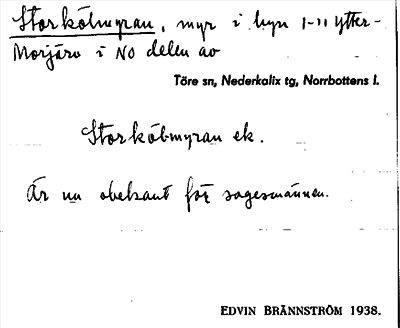 Storkölmyran, myr i hyn 1-11 Ytter-
Morjärv i NO delen av
Töre sn, Nederkalix tg, Norrbottens l.
Storkölmyran ek.
Är nu obekant för sagesmännen.
EDVIN BRÄNNSTRÖM 1938.